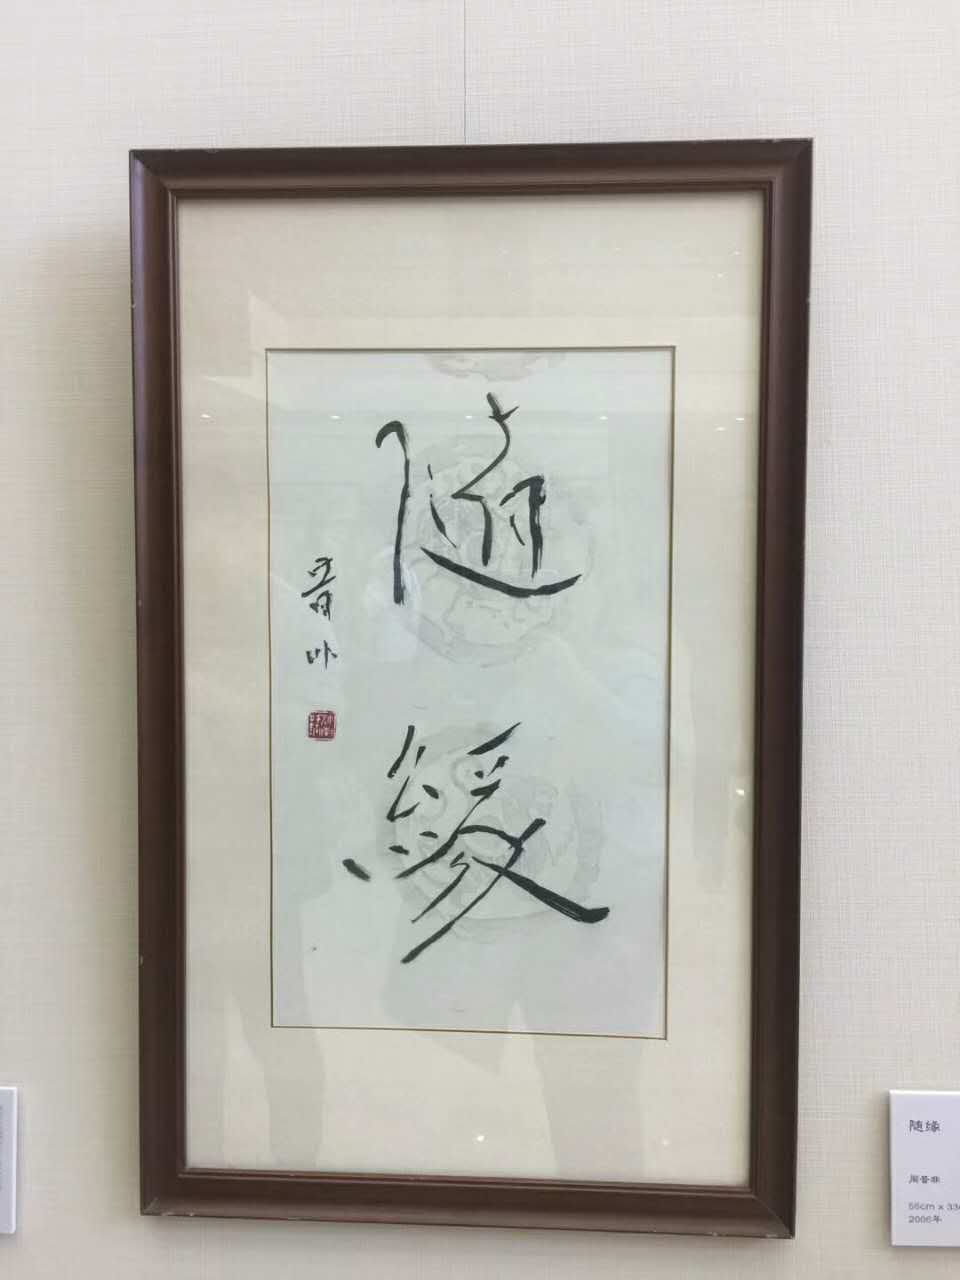 隨緣
昔非
随缘
周昔非
55cm x 33c
2006年